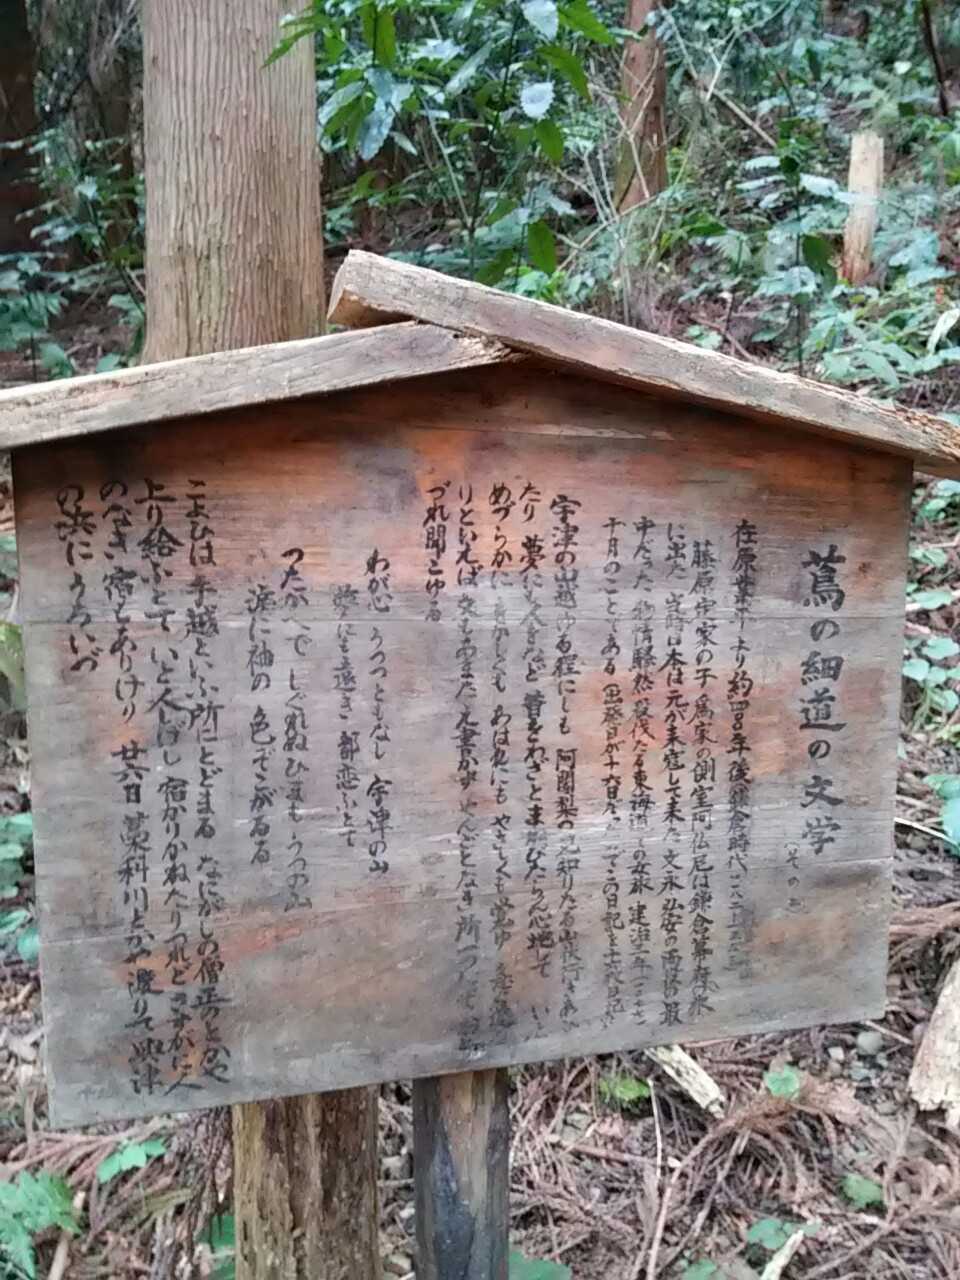 蔦の細道の文学
(その
在原業平より約四百年後鎌倉時代
藤原定家の子 為家の側室阿仏尼は鎌倉幕府
に出た 当時日本は元が来寇して来た文永弘安の両役の最
中だった 物情騒然殺伐たる東海道の女旅 建治三年
十月のことである 出発日が十六日だったのでこの日記を十六夜日記
宇津の山越ゆる程にしも 阿闍梨の見知りたる山伏行きあひ
たり 夢にも人をなど 昔をわざとまねびたらん心地して いと
めづらかに をかしくも あはれにも やさしくも覚ゆ 急ぐ道な
りといえば 文もあまたえ書かず やんごとなき所一つにぞ
づれ聞こゆる
わが心 うつつともなし 宇津の山
夢にも遠き 都恋ふとて
つたかへで しぐれぬひまも うつの山
涙に袖の 色ぞこがるる
こよひは手越といふ所にとどまる なにがしの僧正のとかや
上り給ふとて いと人しげし 宿かりかねたりつれど さすがに人
のなき宿もありけり 廿六日 藁科川とかや渡りて 興津
の浜にうちいづ